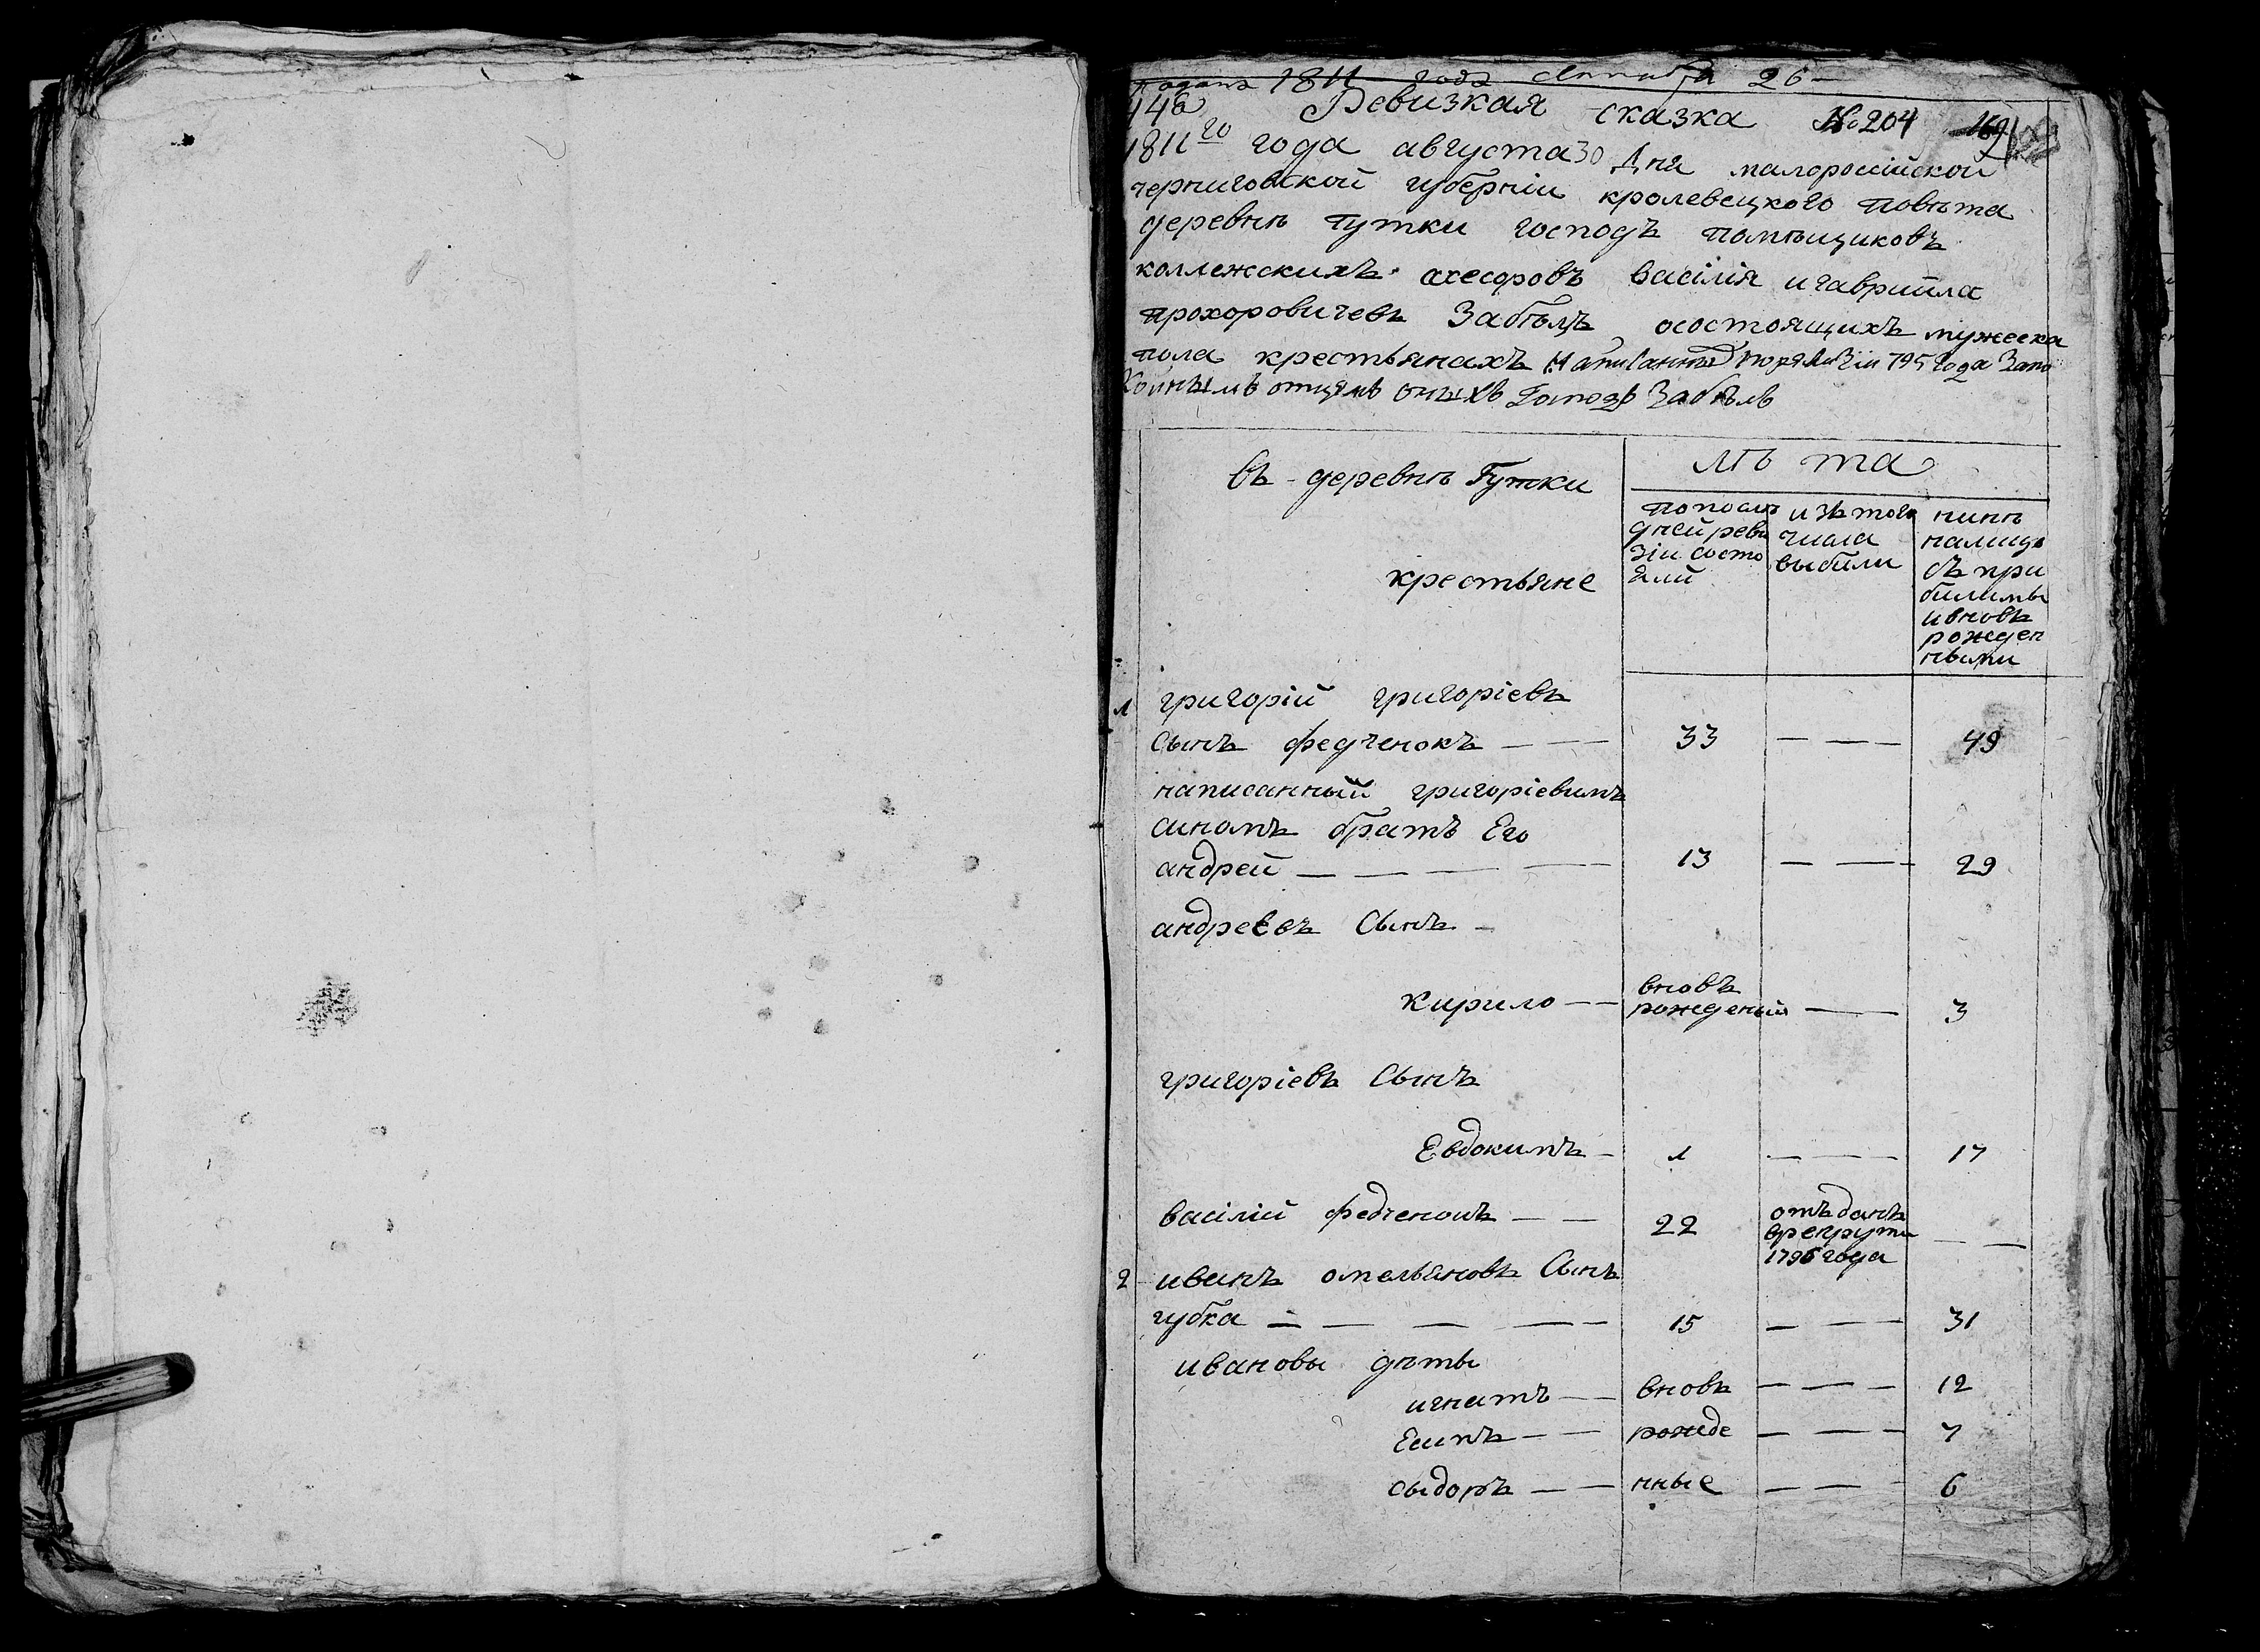 1811 года 26
448 Ревизкая сказка №204 169
1811го года августа 30 Дня малороссійской
черниговской губерніи кролевецкого повѣта
деревнѣ Гутки господъ помѣщиковъ
коллежскихъ ахесоровъ васілія и гавриила
прохоровичевъ Забѣлъ осостоящихъ мужеска
пола крестьянахъ Написанныхъ поревизіи 795 Года Запо
койнымъ отцемъ оныхъ Забѣлъ
Въ деревнѣ Гутки
лѣта
крестьяне
попослѣ
дней реви
зіи состо
яли
изъ того
числа
выбили
нинѣ
налицо
съ при
билимы
и вновь
рожден
ными
1 григорій григоріевъ
сынъ федченокъ — — 33 — — — 49
написанный григоріевимъ
синомъ братъ Его
андрей — — — — 13 — — 29
андреевъ Сынъ —
кирило — — вновь рожденый — — 3
григоріевъ Сынъ
Евдокимъ — 1 — — — 17
василій федченокъ — — 22 отъданъ врекрути 1796 года — —
2 иванъ омельяновъ Сынъ
губка — — — — — 15 — — — 31
ивановы дѣты
игнатъ — вновь — — — 12
Есипъ — — рожде — — — 7
сыдоръ — — нные — — — 6